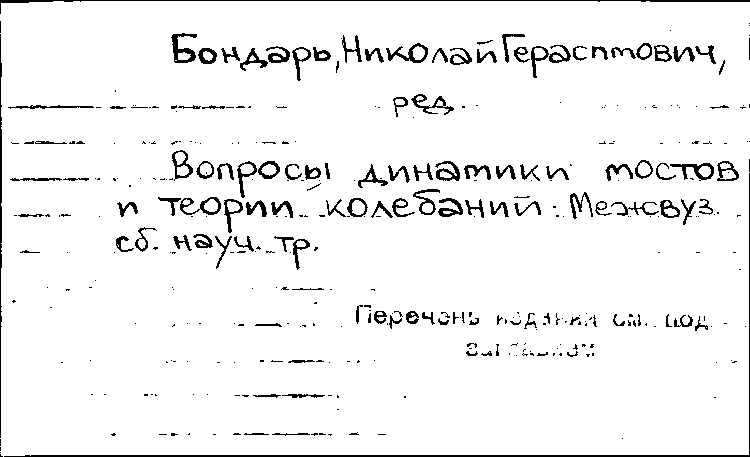 Бондарь, Николай Герасимович,
ред.
Вопросы динамики мостов
и теории колебаний: Межвуз.
сб. науч. тр.
Перечень изданий см. под
заглавием